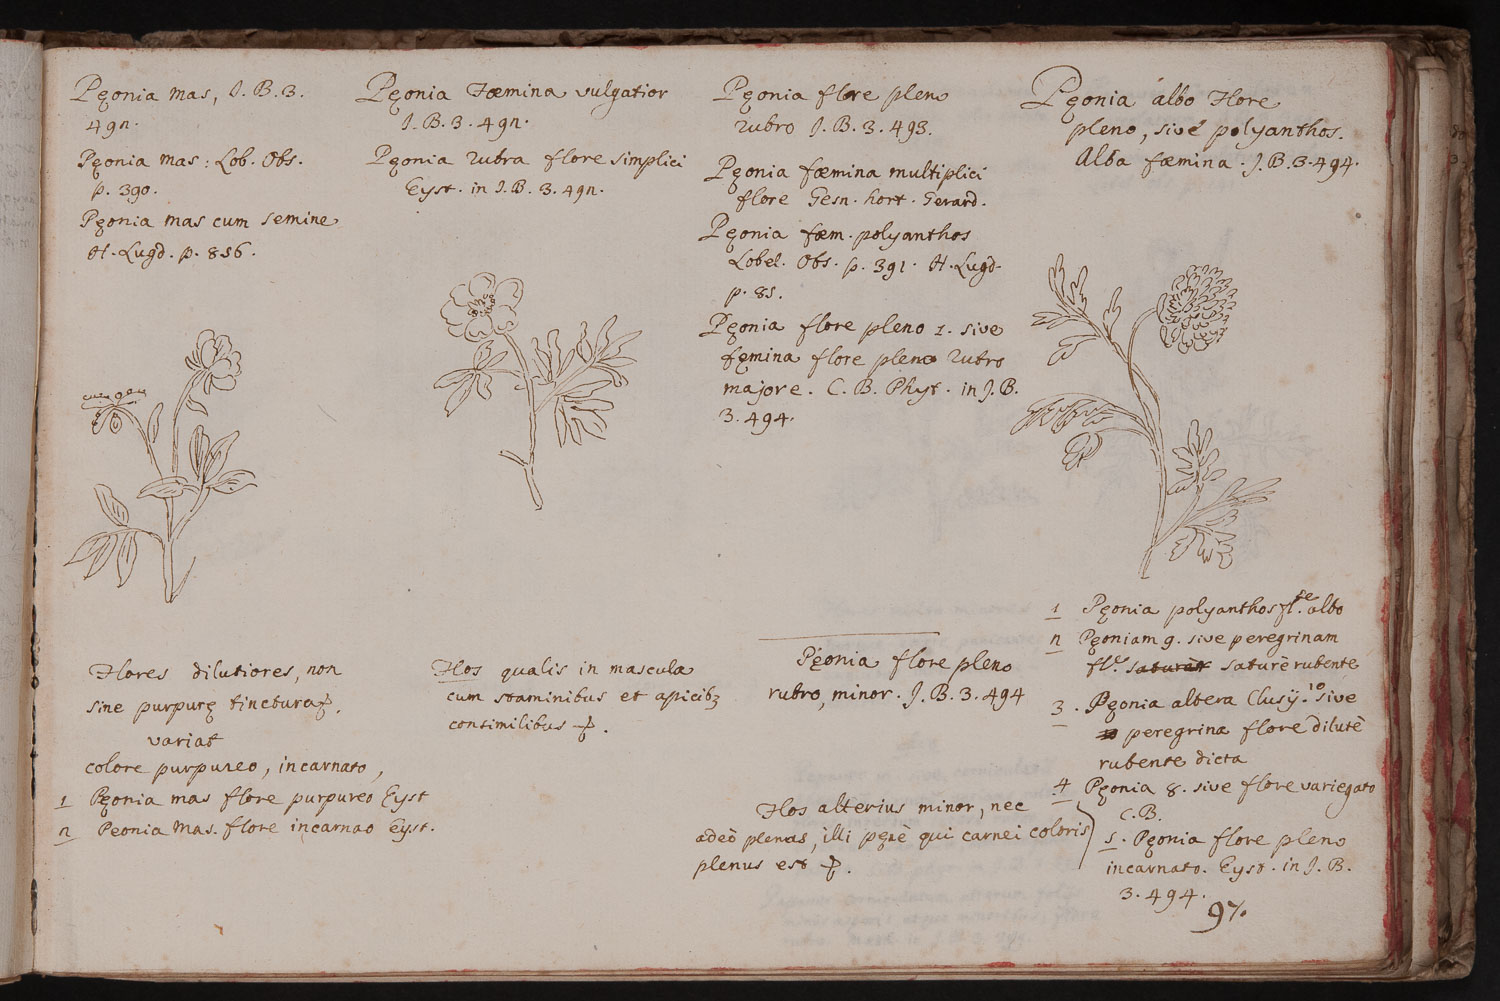 Pęonia mas, J. B. 3.
492.
Pęonia mas: Lob. Obs.
p. 390.
Pęonia mas cum semine
H. Lugd. p. 856.
Flores dilutiores, non
sine purpurę tinctura
variat
colore purpureo, incarnato,
1 Pęonia mas flore purpureo Eyst
2 Peonia mas. flore incarnao Eyst.
Pęonia Fœmina vulgatior
J. B. 3. 492.
Pęonia rubra flore simplici
Eyst. in J. B. 3. 492.
Flos qualis in mascula
cum staminibus et apicibꝫ
consimilibus
Pęonia flore pleno
rubro J. B. 3. 493.
Pęonia fœmina multiplici
flore Gesn. hort. Gerard.
Pęonia fœm. polyanthos
Lobel. Obs. p. 391. H. Lugd.
p. 85.
Pęonia flore pleno 1. sive
fęmina flore pleno rubro
majore. C. B. Phyt. in J. B.
3. 494.
Pęonia flore pleno
rubro, minor. J. B. 3. 494
Flos alterius minor, nec
adeò plenus, illi pęnè qui carnei coloris
plenus est
Pęonia albo Flore
pleno, sive polyanthos.
Alba fœmina. J. B. 3. 494.
1 Pęonia polyanthos fl.re albo
2 Pęoniam 9. sive peregrinam
fl. saturè rubente
3. Pęonia altera Clusij. sive
peregrina flore dilutè
rubente dicta
4 Pęonia 8. sive flore variegato
C. B.
5. Pęonia flore pleno
incarnato. Eyst. in J. B.
3. 494.
97.